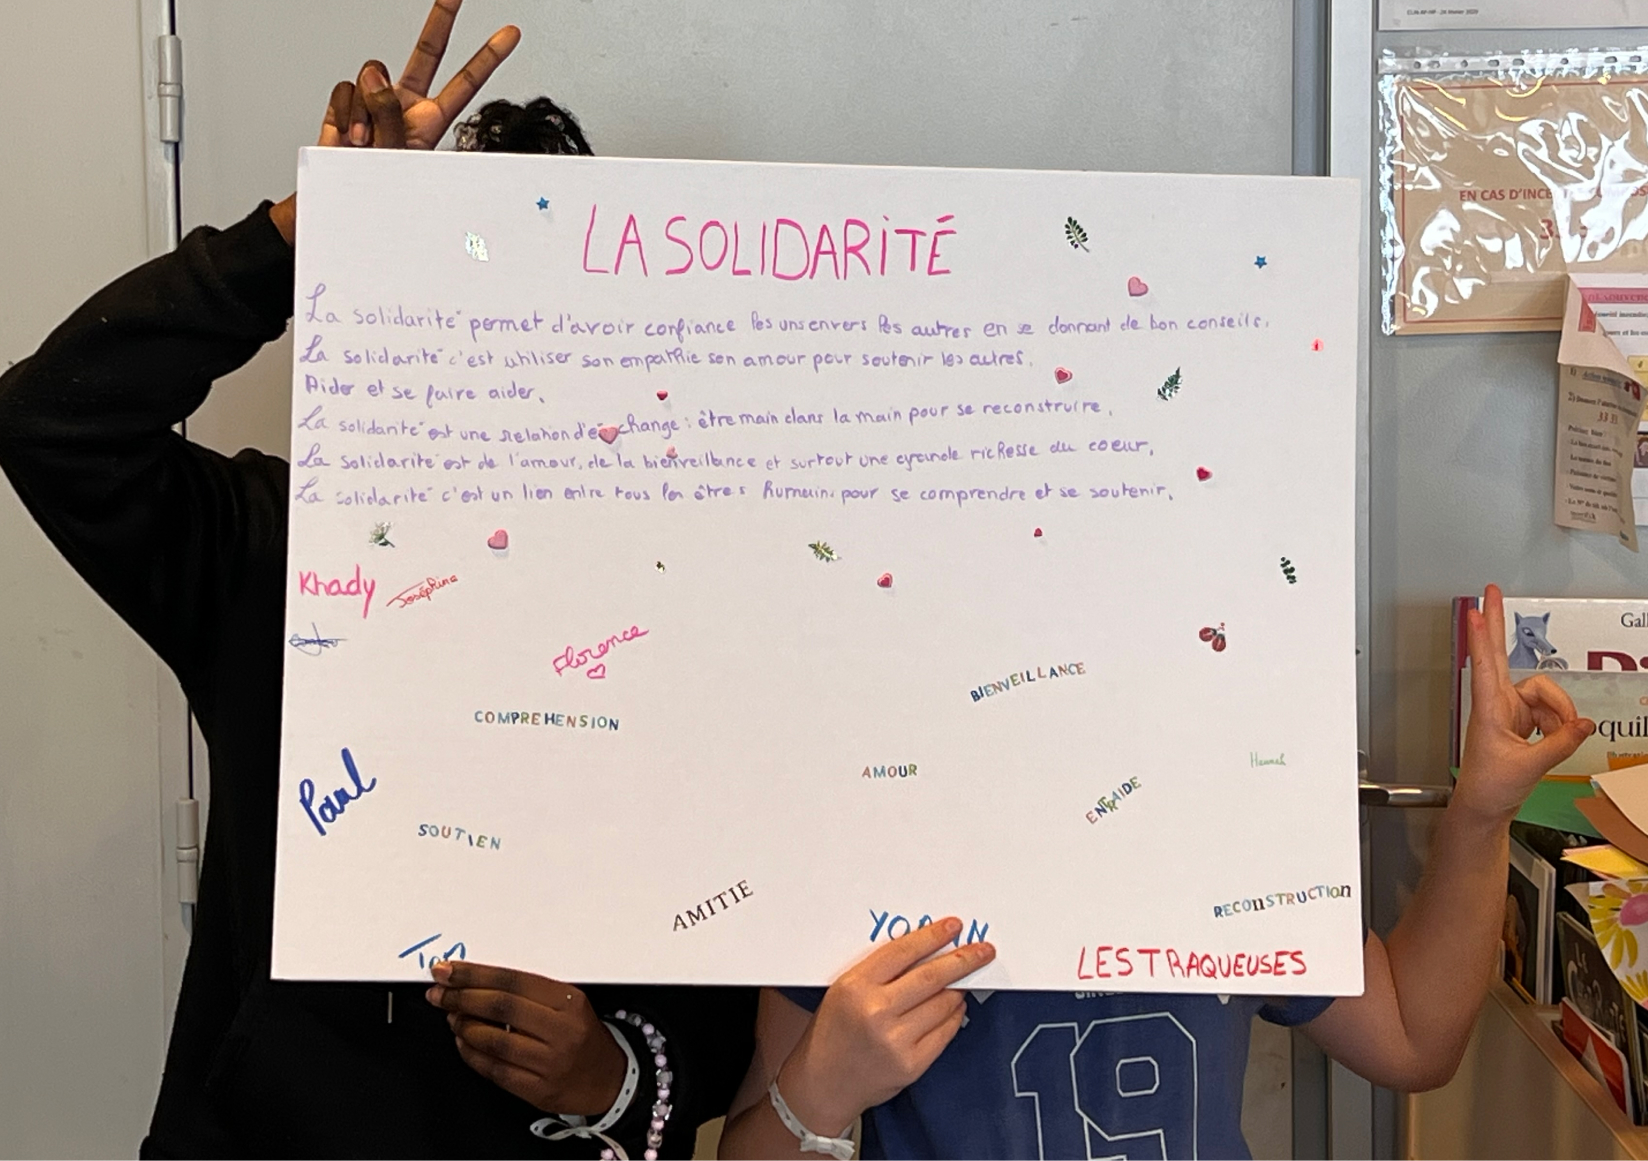 LA SOLIDARITÉ
La solidarité permet d'avoir confiance les uns envers les autres en se donnant de bon conseils.
La solidarité c'est utiliser son empathie son amour pour soutenir les autres.
Aider et se faire aider.
La solidarité est une relation d'échange : être main dans la main pour se reconstruire.
La solidarité est de l'amour, de la bienveillance et surtout une grande richesse du coeur.
La solidarité c'est un lien entre tous les êtres humain pour se comprendre et se soutenir.
Khady Joséphine
Florence
BIENVEILLANCE
COMPREHENSION
Paul
AMOUR
Hannah
ENTRAIDE
SOUTIEN
AMITIE
RECONSTRUCTION
LES TRAQUEUSES
19
EN CAS D'INCE
Gall
oquil